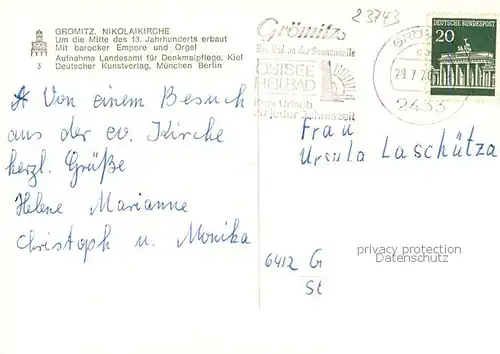 23743
GRÖMITZ, NIKOLAIKIRCHE
Um die Mitte des 13. Jahrhunderts erbaut
Mit barocker Empore und Orgel
Aufnahme Landesamt für Denkmalpflege, Kiel
3 Deutscher Kunstverlag, München Berlin
Grömitz
Das Bad an der Sonnenseite
OSTSEE
HEILBAD
Ihr Urlaub
zu jeder Jahreszeit
29.7.70
2433
DEUTSCHE BUNDESPOST
20
Von einem Besuch
aus der ev. Kirche
herzl. Grüße
Helene Marianne
Christoph u. Monika
Frau
Ursula Laschütza
privacy protection
Datenschutz
6412 G
St